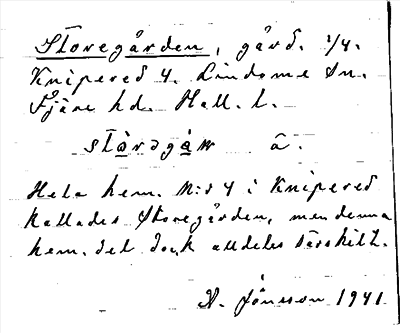 Storegården, gård. 1/4.
Knipered 4. Lindome sn.
Fjäre hd. Hall. l.
stòrəgàɴ â.
Hela hem. N:r 4 i Knipered
kallades Storegården, men denna
hem.del dock alldeles särskilt.
A. Jönsson 1941.